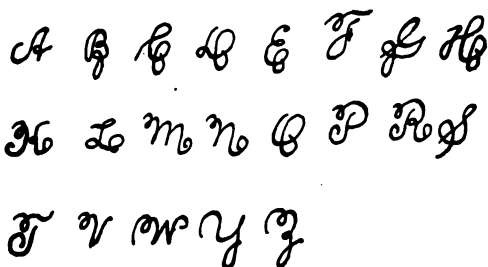 A B C D E F G H
K L M N O P R S
T V W Y Z